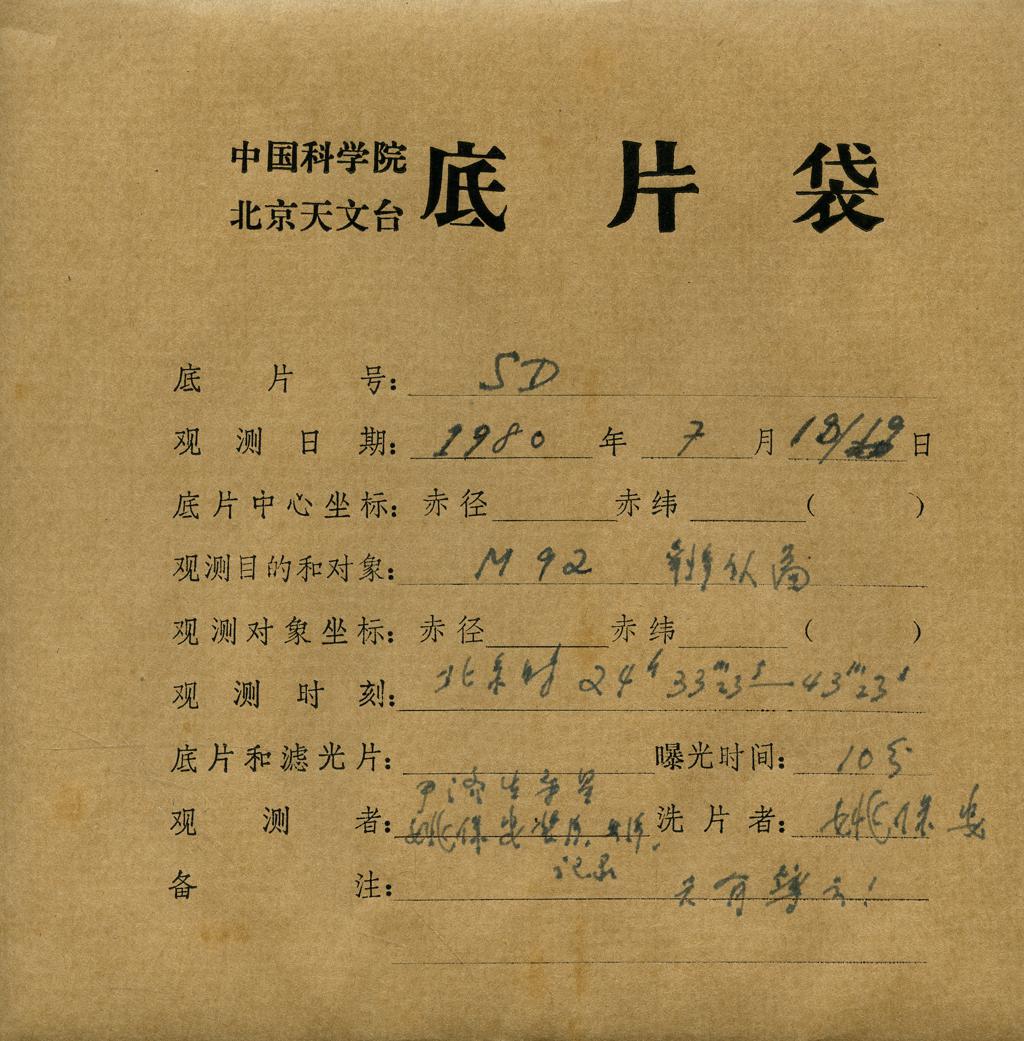 中国科学院
北京天文台
底片袋
底片号： SD
观测日期： 1980 年 7 月 18/19 日
底片中心坐标： 赤径 赤纬 （ ）
观测目的和对象： M 92
观测对象坐标： 赤径 赤纬 （ ）
观测时刻： 北京时 24h 33m23s—43m23s
底片和滤光片： 曝光时间： 10分
观测者： 姚保安 洗片者： 姚保安
记录
备注： 天有薄云！